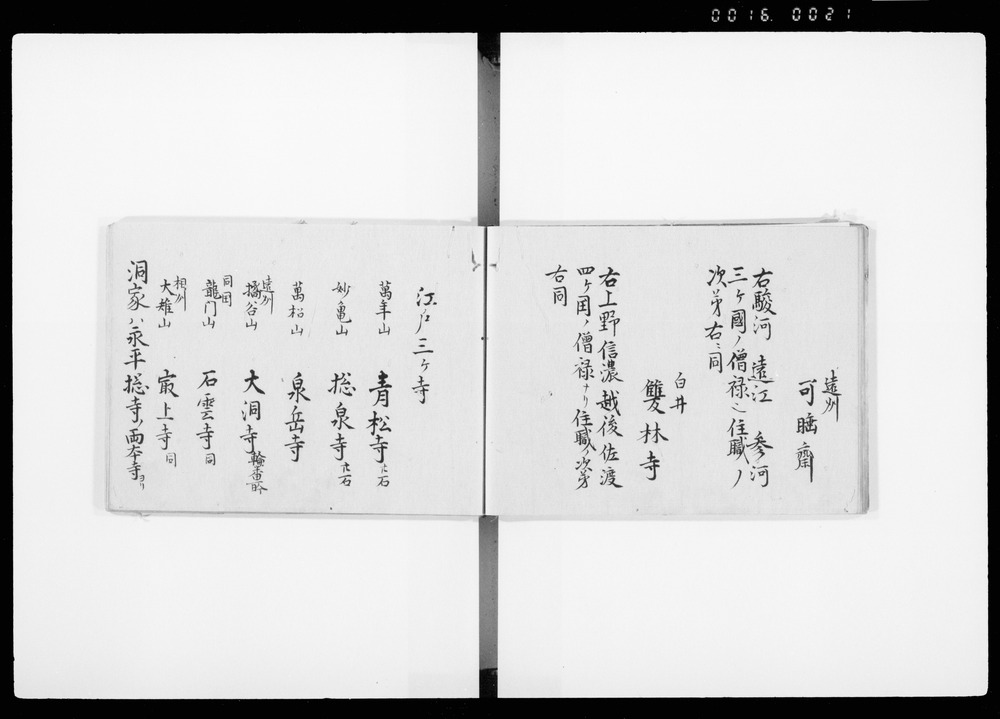 0016. 0021
遠州
可睡齋
右駿河 遠江 参河
三ヶ國ノ僧禄也住職ノ
次第右ニ同
白井
雙林寺
右上野信濃越後佐渡
四ヶ国ノ僧禄ナリ住職ノ次第
右同
江戸三ヶ寺
萬年山 青松寺 廿石
妙亀山 揔泉寺 廿石
萬松山 泉岳寺
遠州
橘谷山 大洞寺 輪番所
同国
龍門山 石雲寺 同
相州
大雄山 最上寺 同
洞家ハ永平揔寺ノ両本寺ヨリ